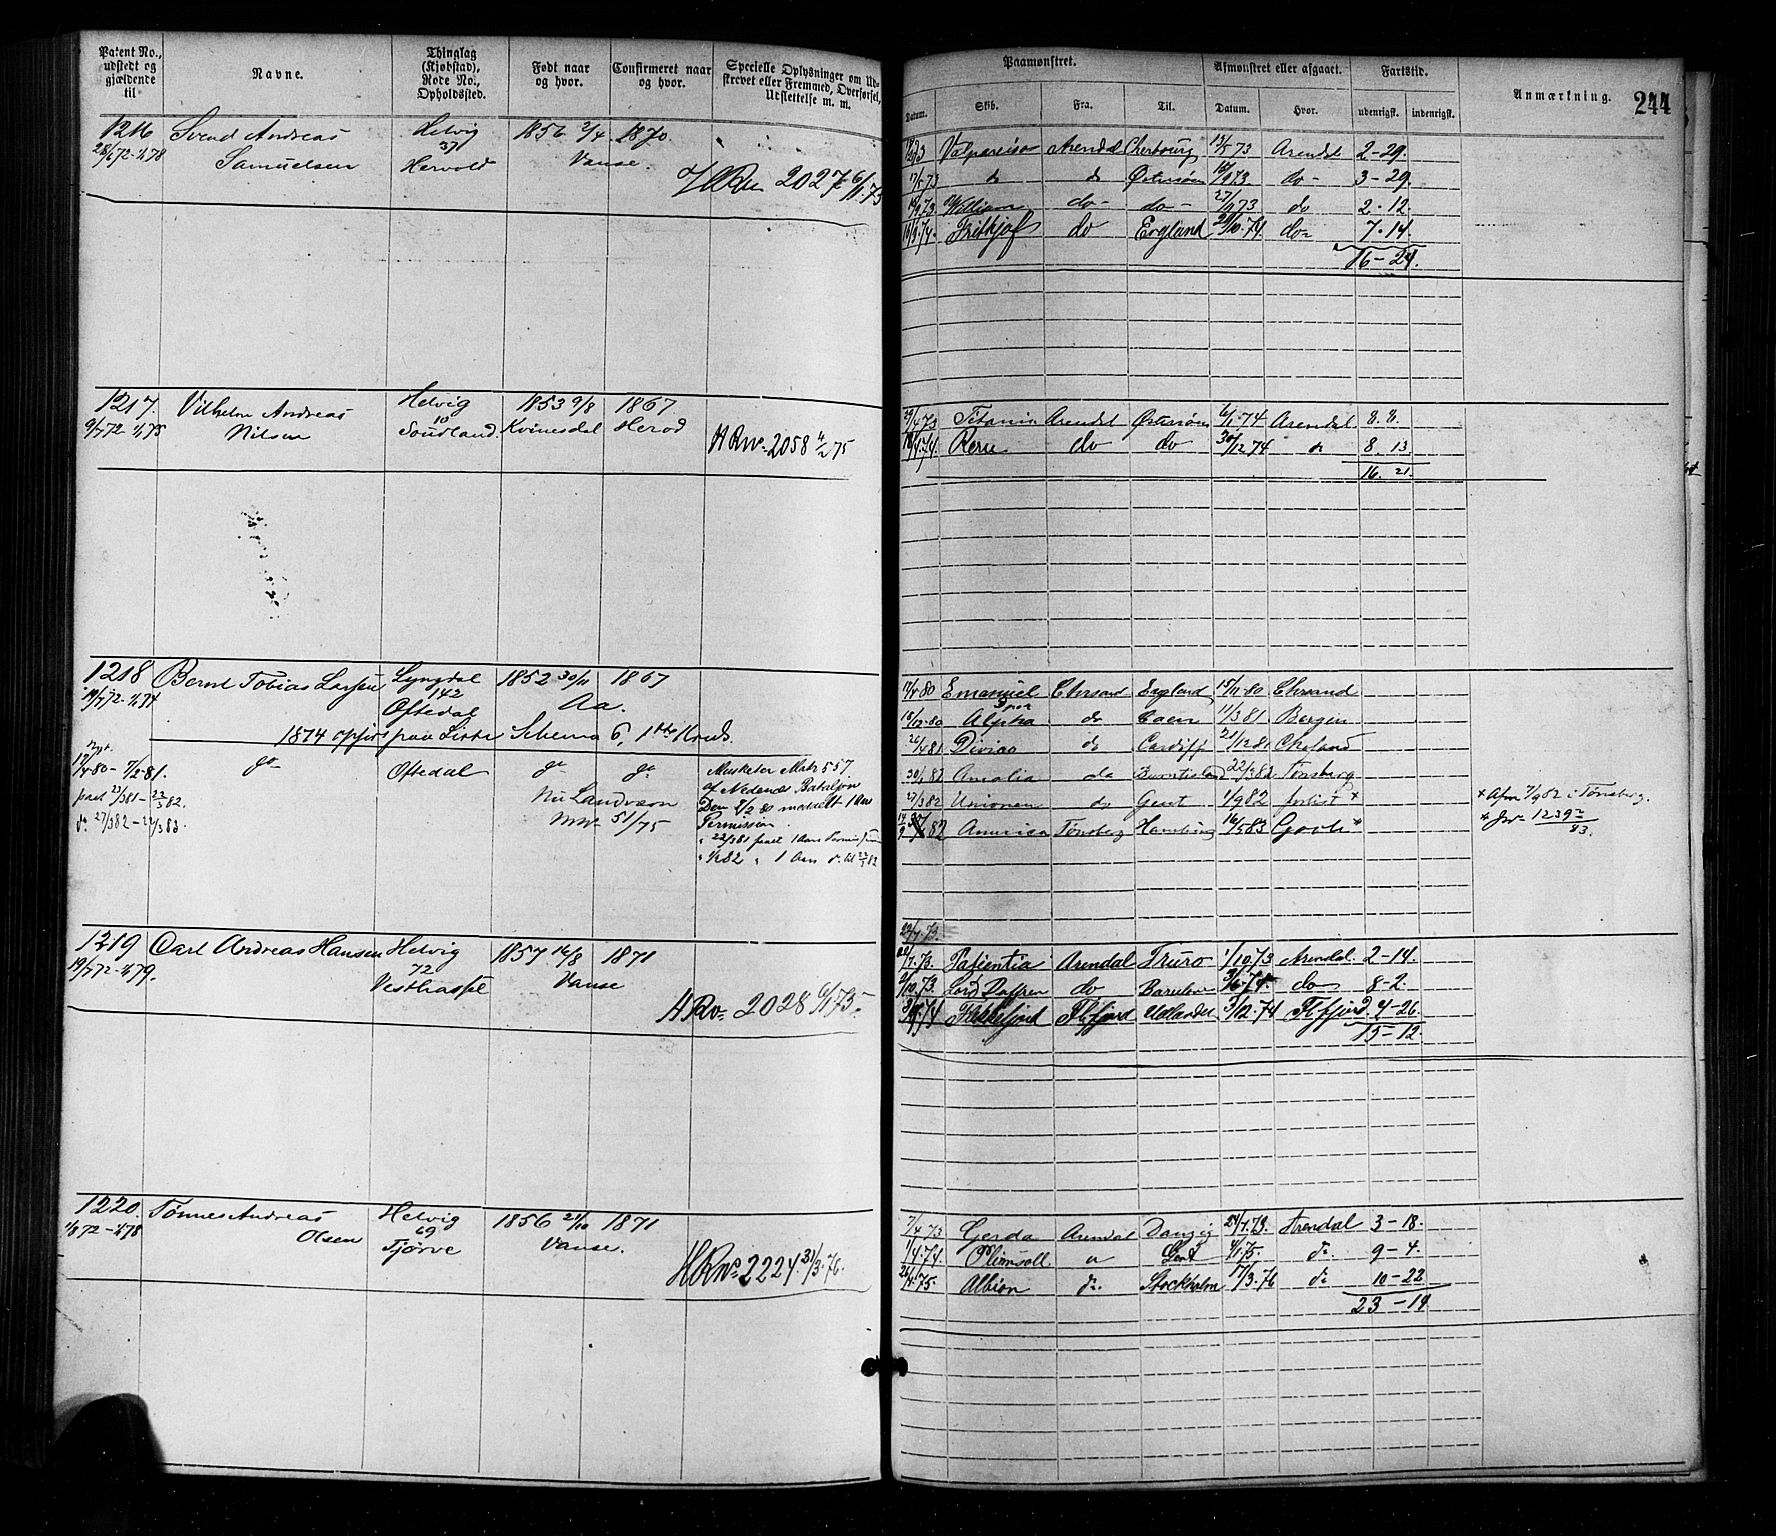 Patent No., udstedt og gjældende til
Navne.
Thinglag (Kjøbstad), Rode No., Opholdssted.
Født naar og hvor.
Confirmeret naar og hvor.
Specielle Oplysninger om Udskrevet eller Fremmed, Overførsel, Udslettelse m. m.
Paamønstret.
Afmønstret eller afgaaet.
Fartstid.
Anmærkning.
244
Datum.
Skib.
Fra.
Til.
Datum.
Hvor.
udenrigst.
indenrigst.
1216 Svend Andreas Helvig 1856 2/4 1870
28/6 72 - 1/1 78 Samuelsen 37 Vanse.
Hervold
HRNo 2027 6/11.75
Valpareiso Arendal Cherbourg 13/5 73 Arendal 2-29.
17/5 73 do do Østersøen do- 3-29.
19/9 73 William do- do- 27/11 73 do 2-12
Frithjof do England 24/10.74 do- 7.14.
16-24.
1217. Vilhelm Andreas Helvig 1853 9/8 1867
9/7 72 - 1/1 75 Nilsen 10 Sondland. Kvinesdal Herod
HRNo 2058 4/2 75
29/4 73 Titania Arendal Østersøen 6/1.74 Arendal 8.8.
Rerie do do 30/12 74 do 8 13
16. 21.
1218 Bernt Tobias Larsen Lyngdal 1852 30/11 1867
19/7 72 - 1/1 74 142 Aa.
Oftedal
1874 opført paa Liste Schema 6, 1ste Kreds.
Nyt
17/4 80 - 7/2 81. do Oftedal do do
paat 23/3 81 - 22/3 82. Nu Landværn
do 27/3 82 - 22/3 83. MNo 51/75
Musketer Matr 557
af Nedenæs Bataljon
Den 2/2 80 meddelt 1 Aars
Permission.
" 22/3 81 paat 1 Aars Permission
" 1/2 82 " 1 Aars do til 22/3 83
17/4 80 Emanuel Chrsand England 15/11 80 Chrsand
18/12.80 Alpha do Caen 11/3 81 Bergen
26/4 81 Divico do Cardiff 21/12 81 Chrsand
30/1 82 Amalia do Burntisland 22/3 82 Tønsberg
27/3 82 Unionen do Gent 1/9 82 forlist x
America Tønsberg Hamburg 16/5 83 Goole *
x Afm 7/9 82 i Tønsberg.
* Jno 1239/83.
22/7.73.
1219 Carl Andreas Hansen Helvig 1857 16/8 1871
19/7 72 - 1/1 79. 72 Vanse
Vesthassel
HRNo 2028 6/11 75-
22/7.73. Patientia Arendal Truro 1/10.73 Arendal 2-14.
9/10.73. Lord Palfren do Barcelona do 8-2.
Flekkefjord Flfjord Udlandet 3/12.74 Flfjord 4-26
15-12.
1220. Tønnes Andreas Helvig 1856 21/10 1871
1/8 72 - 1/1 78 Olsen 69 Vanse.
Tjørve
HRNo 2224. 31/3.76.
7/4 73 Gerda Arendal Danzig 24/7.73. Arendal 3-18.
1/4.74. Plimsoll do Gent 4/1 75. do 9-4.
26/4.75 Albion do Stockholm 17/3.76 do 10-22
23-14